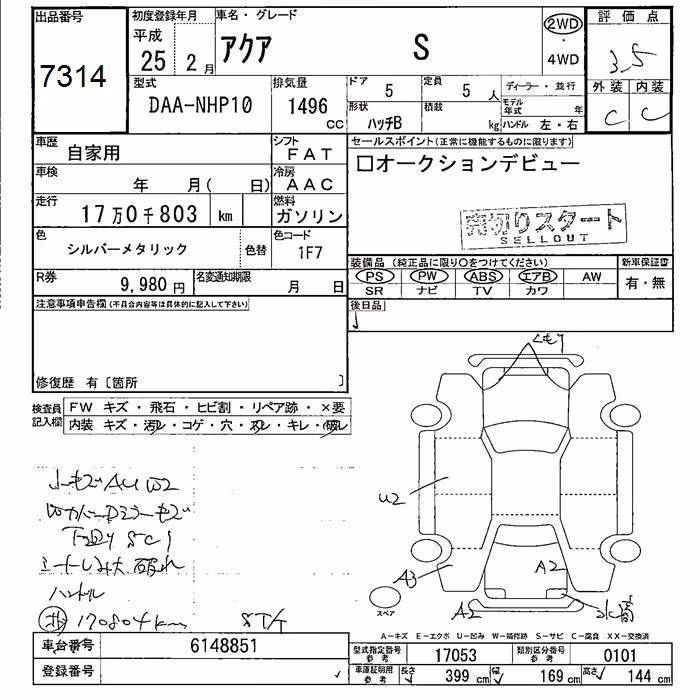 出品番号
7314
初度登録年月
平成
25年 2月
車名・グレード
アクア S
2WD
・
4WD
評価点
3.5
外装 内装
C C
型式
DAA-NHP10
排気量
1496 CC
ドア 5
定員 5 人
ディーラー・並行
モデル年式 年
形状 ハッチB
積載 kg
ハンドル 左・右
車歴
自家用
シフト
FAT
車検
年 月( 日)
冷房
AAC
走行
17万0千803 km
燃料
ガソリン
色
シルバーメタリック
色替
色コード
1F7
R券
9,980円
名変通知期限
月 日
セールスポイント(正常に機能するものに限ります)
□オークションデビュー
売切りスタート
SELLOUT
装備品(純正品に限り○をつけてください)
PS PW ABS エアB AW
SR ナビ TV カワ
新車保証書
有・無
後日品
注意事項申告欄(不具合内容等は具体的に記入して下さい)
修復歴 有〔箇所 〕
検査員記入欄
FW キズ・飛石・ヒビ割・リペア跡・×要
内装 キズ・汚レ・コゲ・穴・スレ・キレ・破レ
AU W2
SC1
ハンドル
170804km
U2
A3
A2
A2
スペア
A-キズ E-エクボ U-凹み W-補修跡 S-サビ C-腐食 XX-交換済
車台番号
6148851
登録番号
型式指定番号参考
17053
類別区分番号参考
0101
車庫証明用参考
長さ 399 cm
幅 169 cm
高さ 144 cm